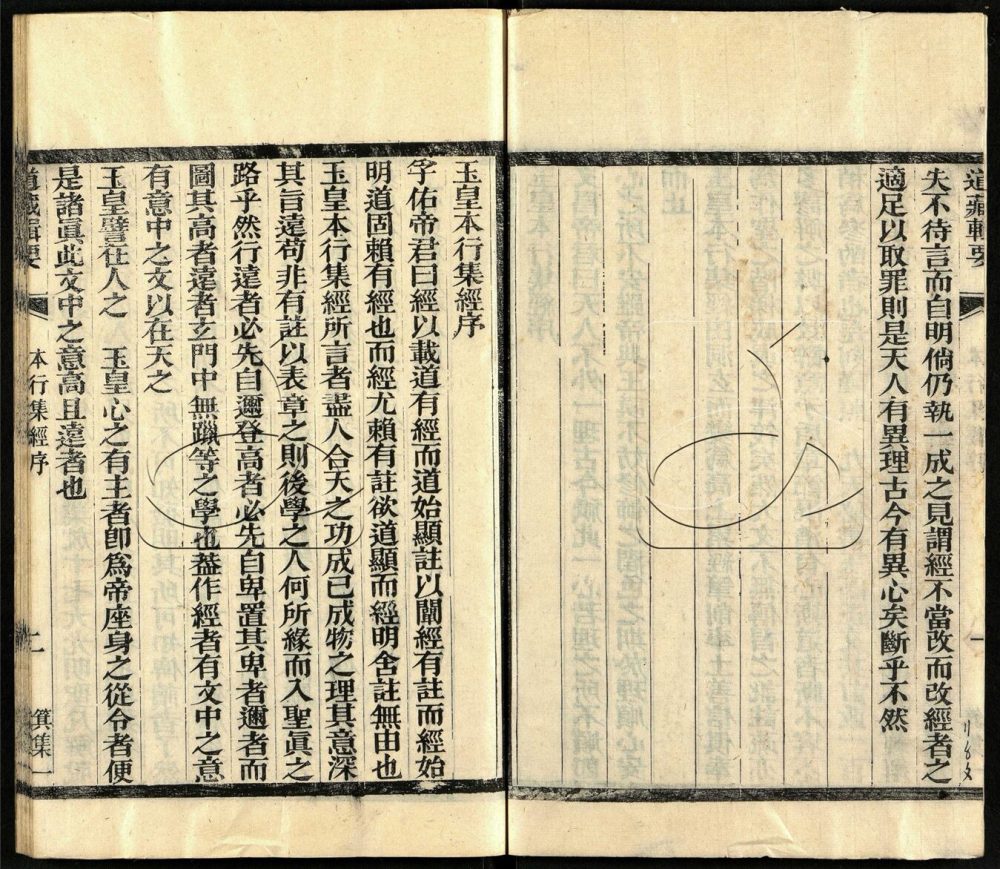 道藏輯要
失不待言而自明倘仍執一成之見謂經不當改而改經者之
適足以取罪則是天人有異理古今有異心矣斷乎不然
玉皇本行集經序
孚佑帝君曰經以載道有經而道始顯註以闡經有註而經始
明道固賴有經也而經尤賴有註欲道顯而經明舍註無由也
玉皇本行集經所言者盡人合天之功成已成物之理其意深
其言遠苟非有註以表章之則後學之人何所緣而入聖眞之
路乎然行遠者必先自邇登高者必先自卑置其卑者邇者而
圖其高者遠者玄門中無躐等之學也葢作經者有文中之意
有意中之文以在天之
玉皇譬在人之　玉皇心之有主者卽爲帝座身之從令者便
是諸眞此文中之意高且遠者也
道藏輯要
本行集經序
七
箕集一